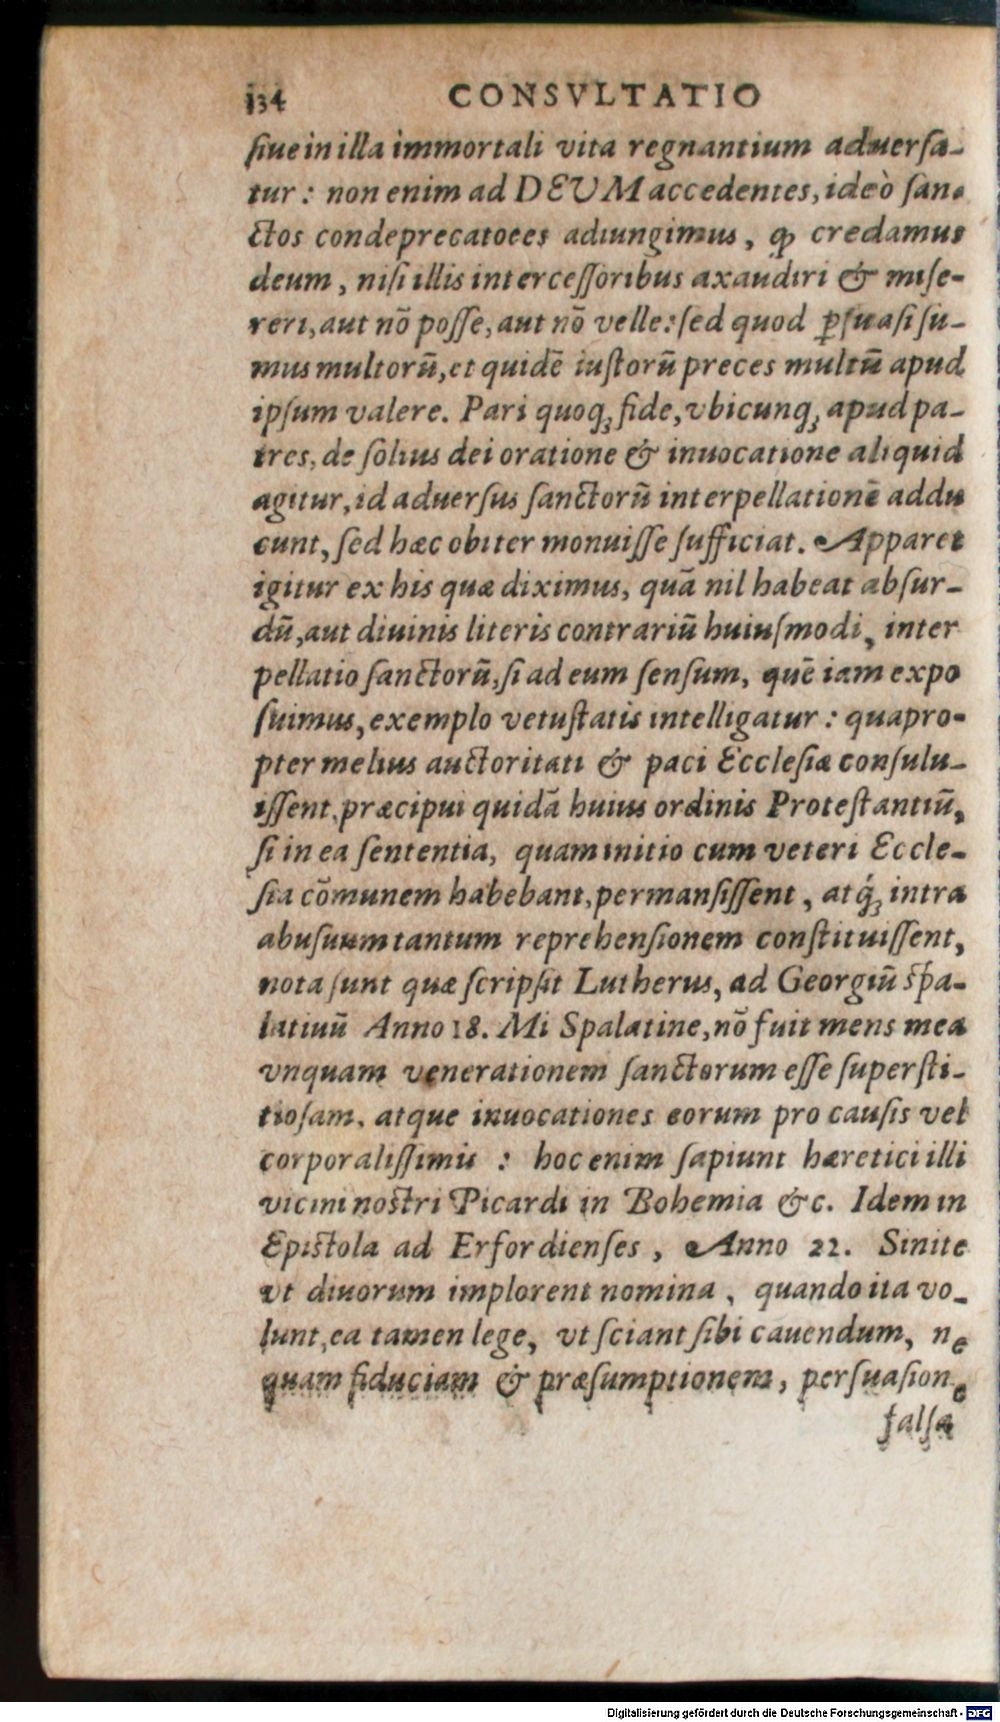 134 CONSVLTATIO
ſiue in illa immortali vita regnantium aduerſa-
tur: non enim ad DEUM accedentes, ideò ſan-
ctos condeprecatoees adiungimus, ꝙ credamus
deum, niſi illis interceſſoribus axaudiri & miſe-
reri, aut nō poſſe, aut nō velle: ſed quod ꝑſuaſi ſu-
mus multorū, et quidē iuſtorū preces multū apud
ipſum valere. Pari quoqꝫ fide, vbicunqꝫ apud pa-
tres, de ſolius dei oratione & inuocatione aliquid
agitur, id aduerſus ſanctorū interpellationē addu
cunt, ſed hæc obiter monuiſſe ſufficiat. Apparet
igitur ex his quæ diximus, quā nil habeat abſur-
dū, aut diuinis literis contrariū huiuſmodi, inter
pellatio ſanctorū, ſi ad eum ſenſum, quē iam expo
ſuimus, exemplo vetuſtatis intelligatur: quapro-
pter melius auctoritati & paci Eccleſiæ conſulu-
iſſent, præcipui quidā huius ordinis Proteſtantiū,
ſi in ea ſententia, quam initio cum veteri Eccle-
ſia cōmunem habebant, permanſiſſent, atqꝫ́ intra
abuſuum tantum reprehenſionem conſtituiſſent,
nota ſunt quæ ſcripſit Lutherus, ad Georgiū ſpa-
latinū Anno 18. Mi Spalatine, nō fuit mens mea
vnquam venerationem ſanctorum eſſe ſuperſti-
tioſam, atque inuocationes eorum pro cauſis vel
corporaliſſimis : hoc enim ſapiunt hæretici illi
vicini noſtri Picardi in Bohemia &c. Idem in
Epiſtola ad Erfordienſes, Anno 22. Sinite
vt diuorum implorent nomina, quando ita vo-
lunt, ea tamen lege, vt ſciant ſibi cauendum, ne
quam fiduciam & præſumptionem, perſuaſione
falſa
Digitalisierung gefördert durch die Deutsche Forschungsgemeinschaft - DFG